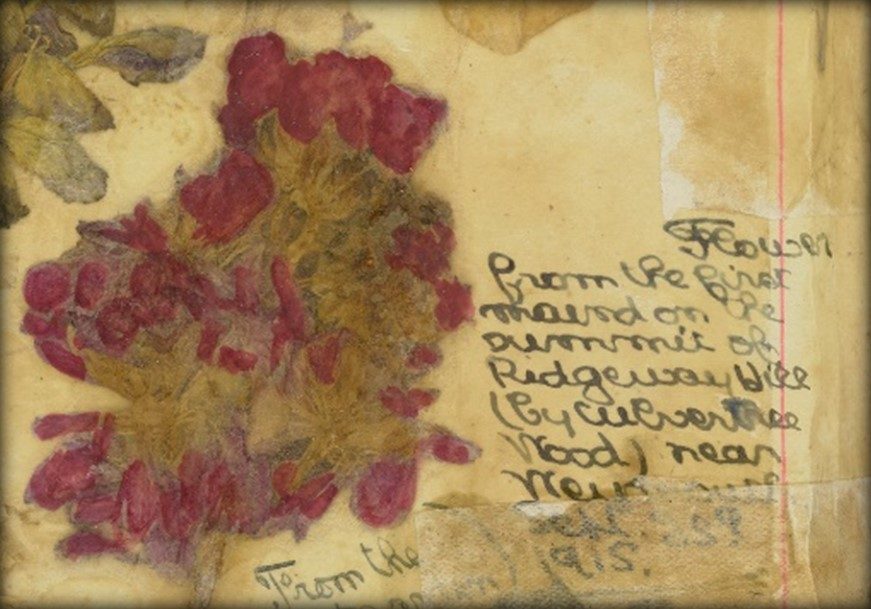 Flower
from the first
mound on the
summit of
Ridgeway Hill
(by Culvertree
Wood) near
1915.
From the